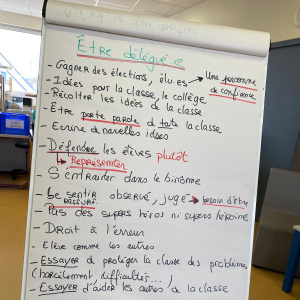 Être délégué.e
- Gagner des élections, élu.es → Une personne de confiance
- Idées pour la classe, le collège
- Récolter les idées de la classe
- Être porte parole de toute la classe
- Ecrire d nouvelles idées
- Défendre les élèves plutôt
↳ Représenter
- S'entraider dans le binôme
- Se sentir observé, jugé → besoin d'être
rassuré
- Pas des supers héros ni supers héroïne
- Droit à l'erreur
- Elève comme les autres
- Essayer de protéger la classe des problèmes,
(harcèlement, difficultés...)
- Essayer d'aider les autres de la classe